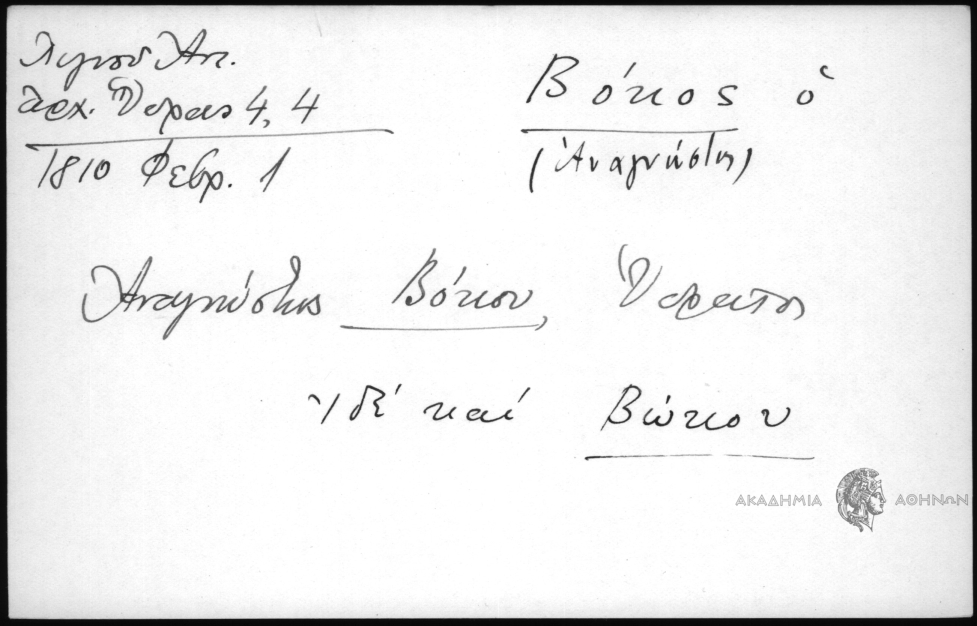 Λιγνοῦ Ἀντ.
Ἀρχ. Ὕδρας 4, 4
1810 Φεβρ. 1
Βόκος ὁ
(Ἀναγνώστης)
Ἀναγνώστης Βόκου, Ὑδραῖος
ἰδέ καί Βώκου
ΑΚΑΔΗΜΙΑ ΑΘΗΝΩΝ